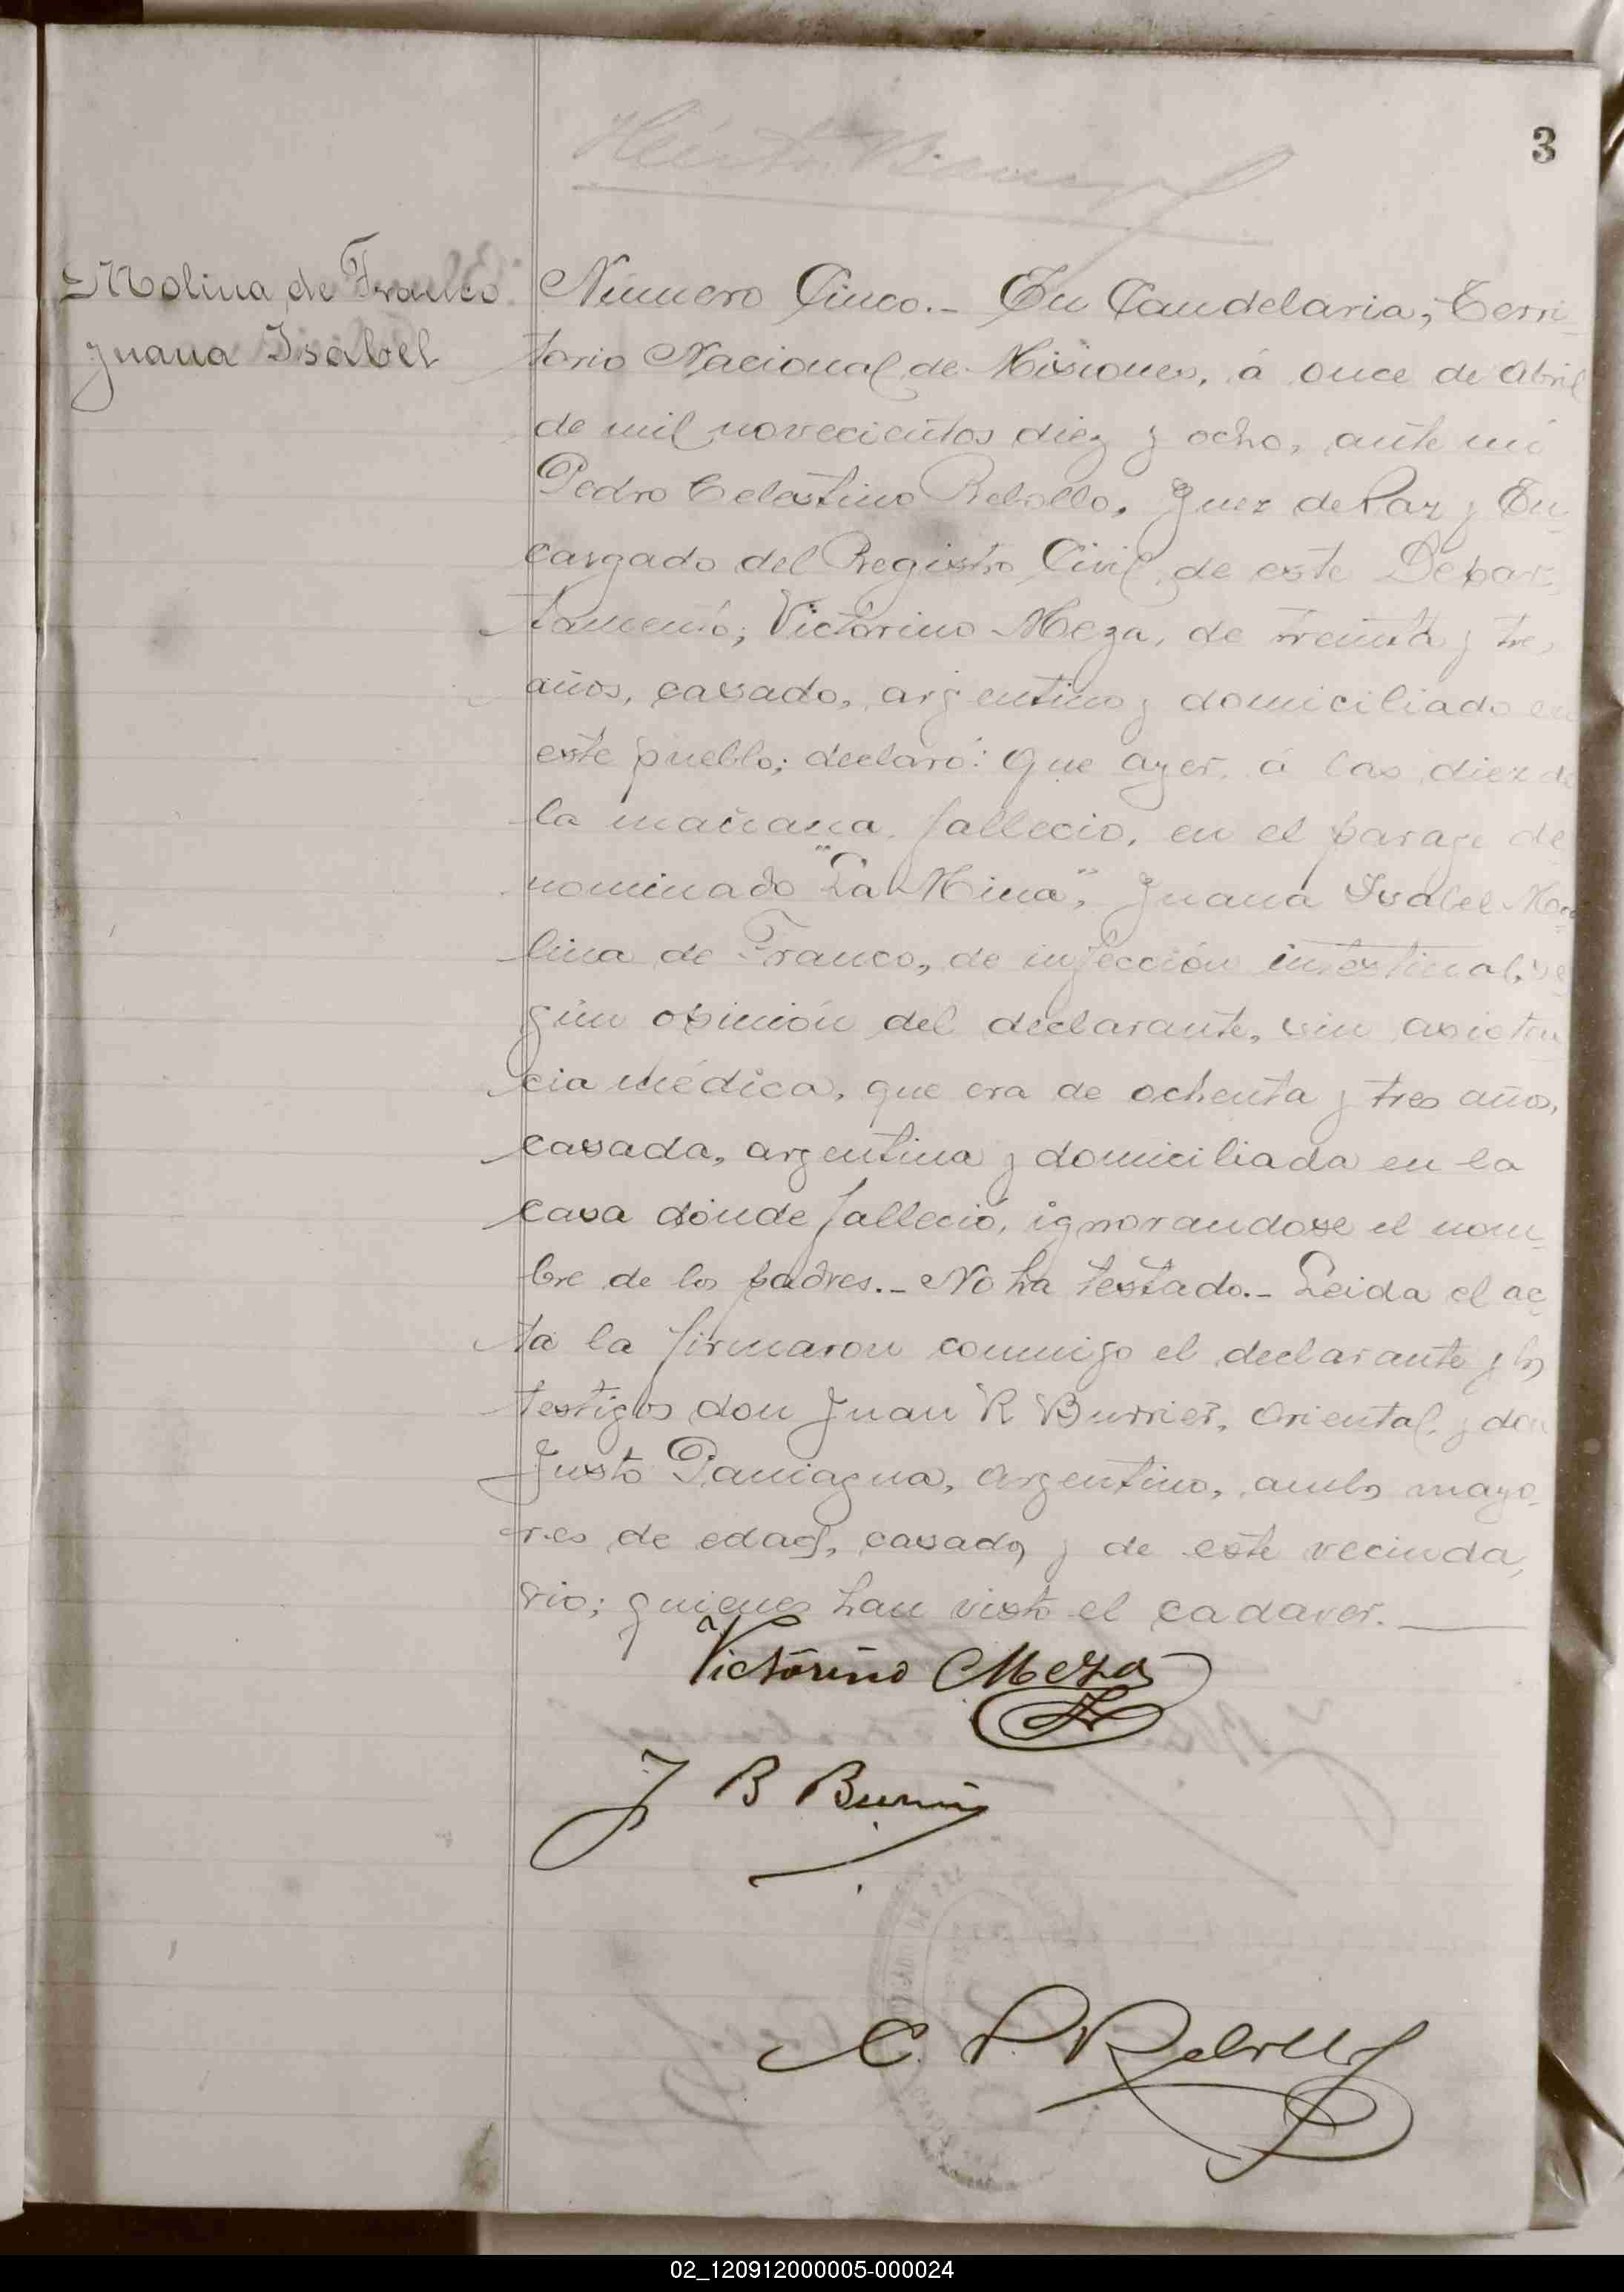 3
Molina de Franco
Juana Isabel
Número Cinco.- En Candelaria, Terri-
torio Nacional de Misiones, á once de Abril
de mil novecientos diez y ocho, ante mí
Pedro Celestino Rebollo, Juez de Paz y En-
cargado del Registro Civil de este Depar-
tamento; Victorino Meza, de treinta y tres
años, casado, argentino y domiciliado en
este pueblo; declaró: Que ayer, á las diez de
la mañana, falleció, en el parage de
nominado "La Mina", Juana Isabel Mo-
lina de Franco, de infección intestinal, se
gún opinión del declarante, sin asisten-
cia médica, que era de ochenta y tres años,
casada, argentina y domiciliada en la
casa donde falleció, ignorandose el nom-
bre de los padres.- No ha testado.- Leida el ac-
ta la firmaron conmigo el declarante y los
testigos don Juan R Burrier, Oriental, y don
Justo Paniagua, Argentino, ambos mayo-
res de edad, casados y de este vecinda-
rio; quienes han visto el cadaver.
Victorino Meza
J B
C. P. Rebollo
02_120912000005-000024